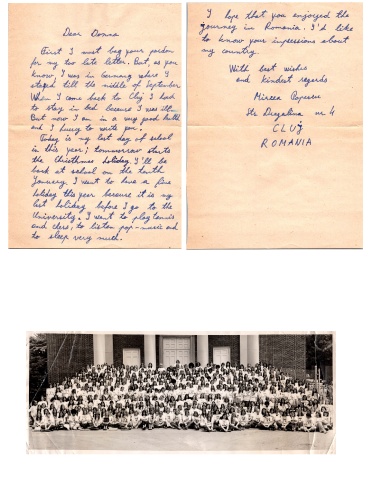 Dear Donna
First I must beg your pardon
for my too late letter. But, as you
know, I was in Germany where I
stayed till the middle of September
When I come back to Cluj I had
to stay in bed because I was ill.
But now I am in a very good health
and I hurry to write you.
Today is my last day of school
in this year; tommorrow starts
the Christmas holiday. I'll be
back at school on the tenth
January. I want to have a fine
holiday this year because it is my
last holiday before I go to the
University. I want to play tennis
and chess, to listen pop-music and
to sleep very much.
I hope that you enjoyed the
journey in Romania. I'd like
to know your impressions about
my country.
With best wishes
and kindest regards
Mircea Popescu
Str Dragalina nr 4
CLUJ
ROMANIA